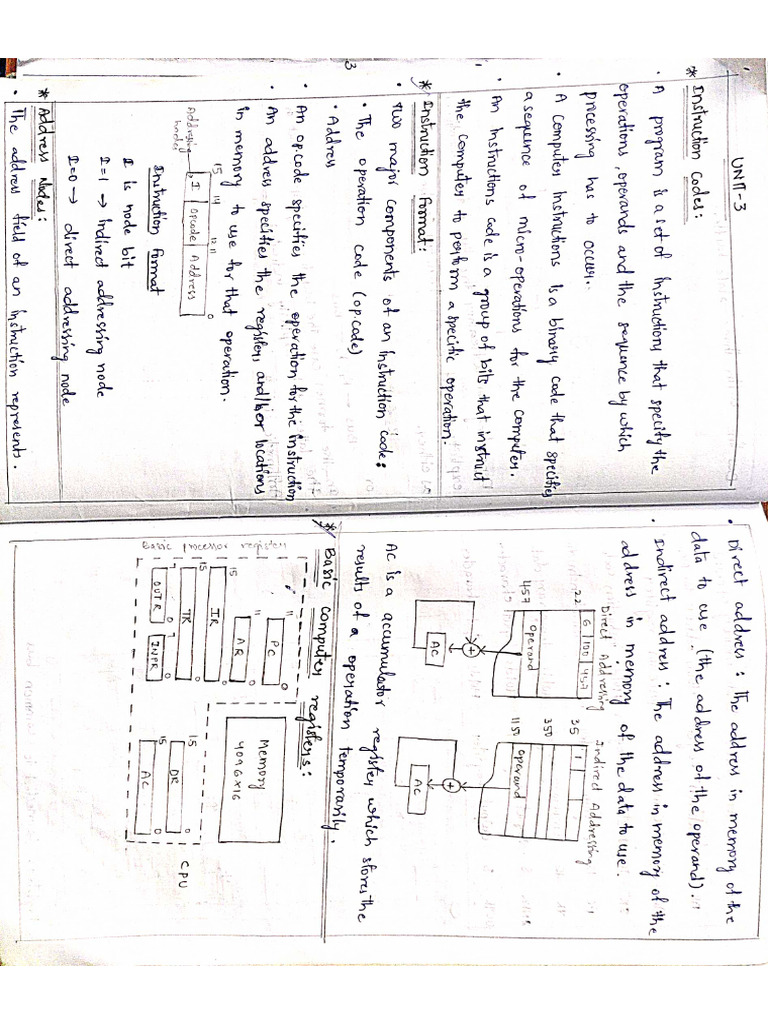 UNIT-3
* Instruction Codes:
• A program is a set of instructions that specify the
operations, operands and the sequence by which
processing has to occur.
• A Computer Instructions is a binary code that specifies
a sequence of micro-operations for the computer.
• An Instructions code is a group of bits that instruct
the computer to perform a specific operation.
* Instruction Format:
• two major components of an instruction code:
• The operation code (op.code)
• Address
3
• An op.code specifies the operation for the instruction
• An address specifies the registers and/or locations
in memory to use for that operation.
15 14 12 11 0
I Opcode Address
Addressing
Instruction Format
I is node bit
I=1 → Indirect addressing node
I=0 → direct addressing node
* Address Nodes:
• The address field of an instruction represents.
• Direct address: The address in memory of the
data to use (the address of the operand).
• Indirect address: The address in memory of the
address in memory of the data to use.
Direct Addressing
22 6 100 457
457 operand
+
AC
Indirect Addressing
35 1
350
1150 operand
+
AC
AC is a accumulator register which stores the
results of a operation temporarily.
* Basic computer registers:
11 0
PC
11 0
AR
15 0
IR
15 0
TR
7 0 7 0
OUTR INPR
Memory
4096×16
15 0
DR
15 0
AC
CPU
Basic processor registers